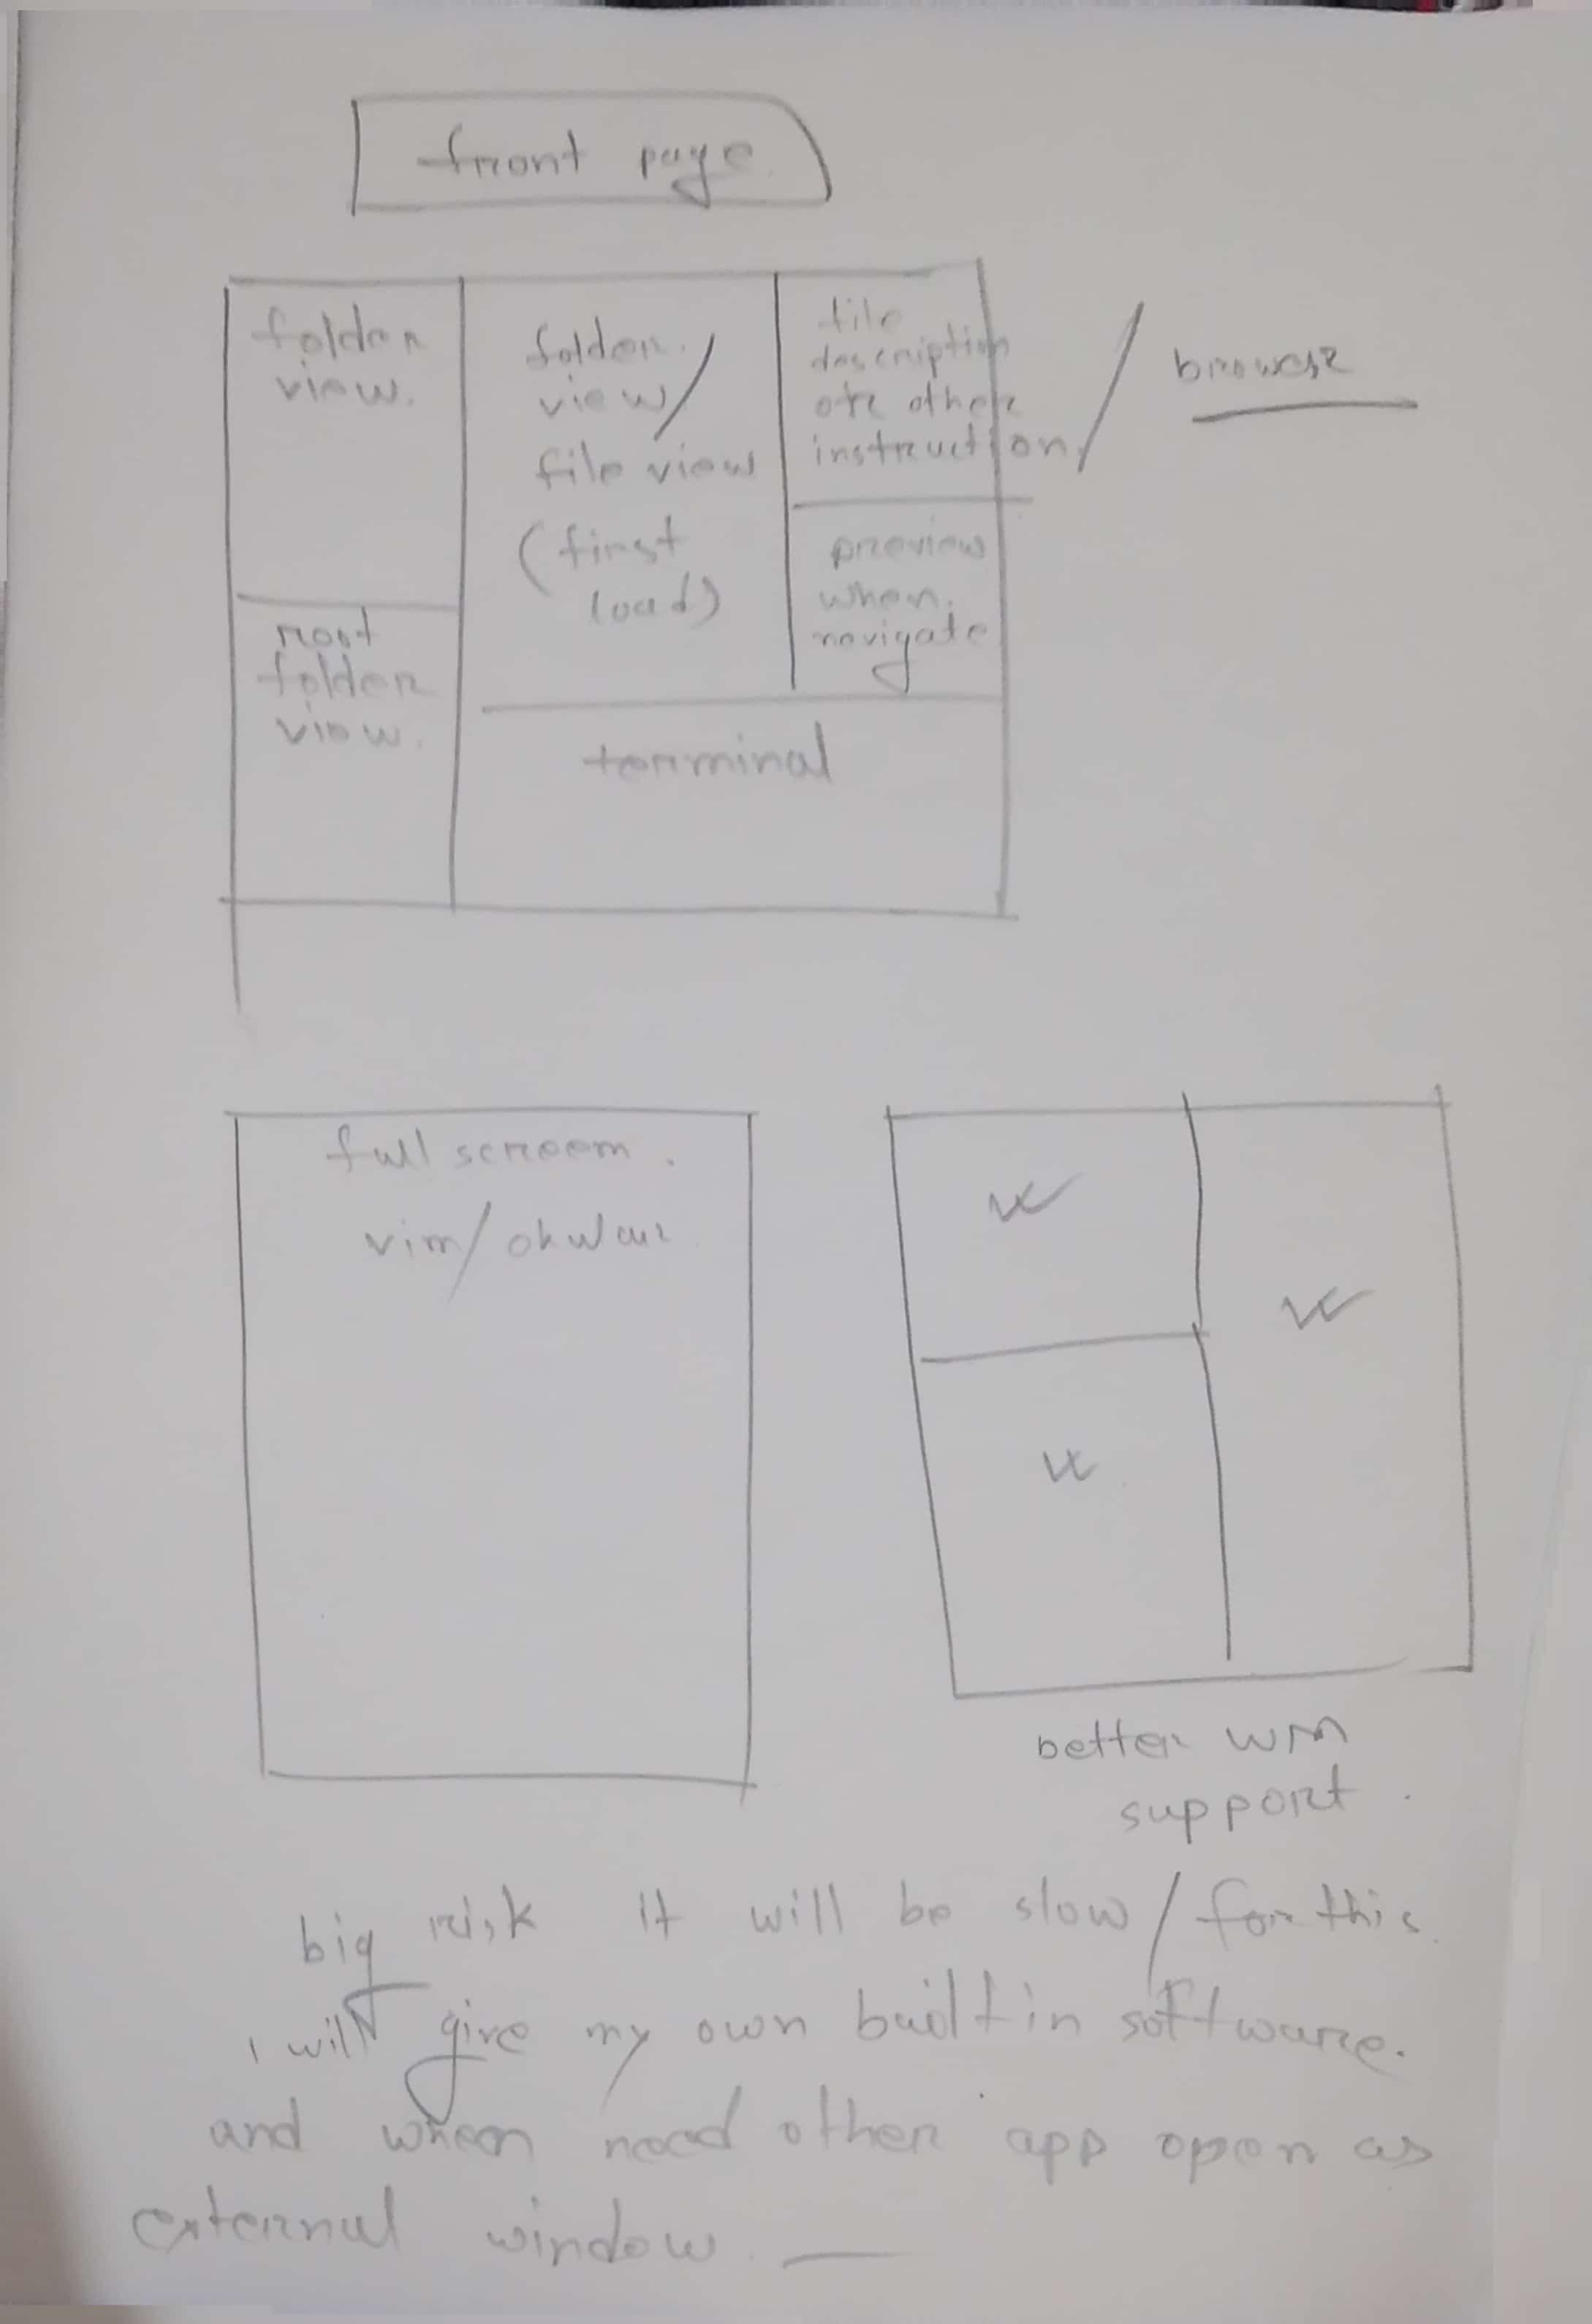 front page
folder
view.
folder
view/
file view
(first
load)
file
description
or other
instruction/
browse
preview
when
navigate
root
folder
view.
terminal
full screem.
vim/okular
better wm
support.
big risk it will be slow/for this
i will give my own builtin software.
and when need other app open as
external window.